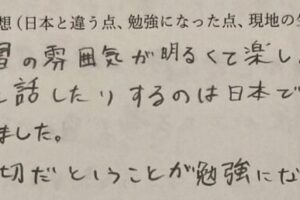 想（日本と違う点、勉強になった点、現地の生
習の雰囲気が明るくて楽し
話したりするのは日本で
ました。
切だということが勉強にな